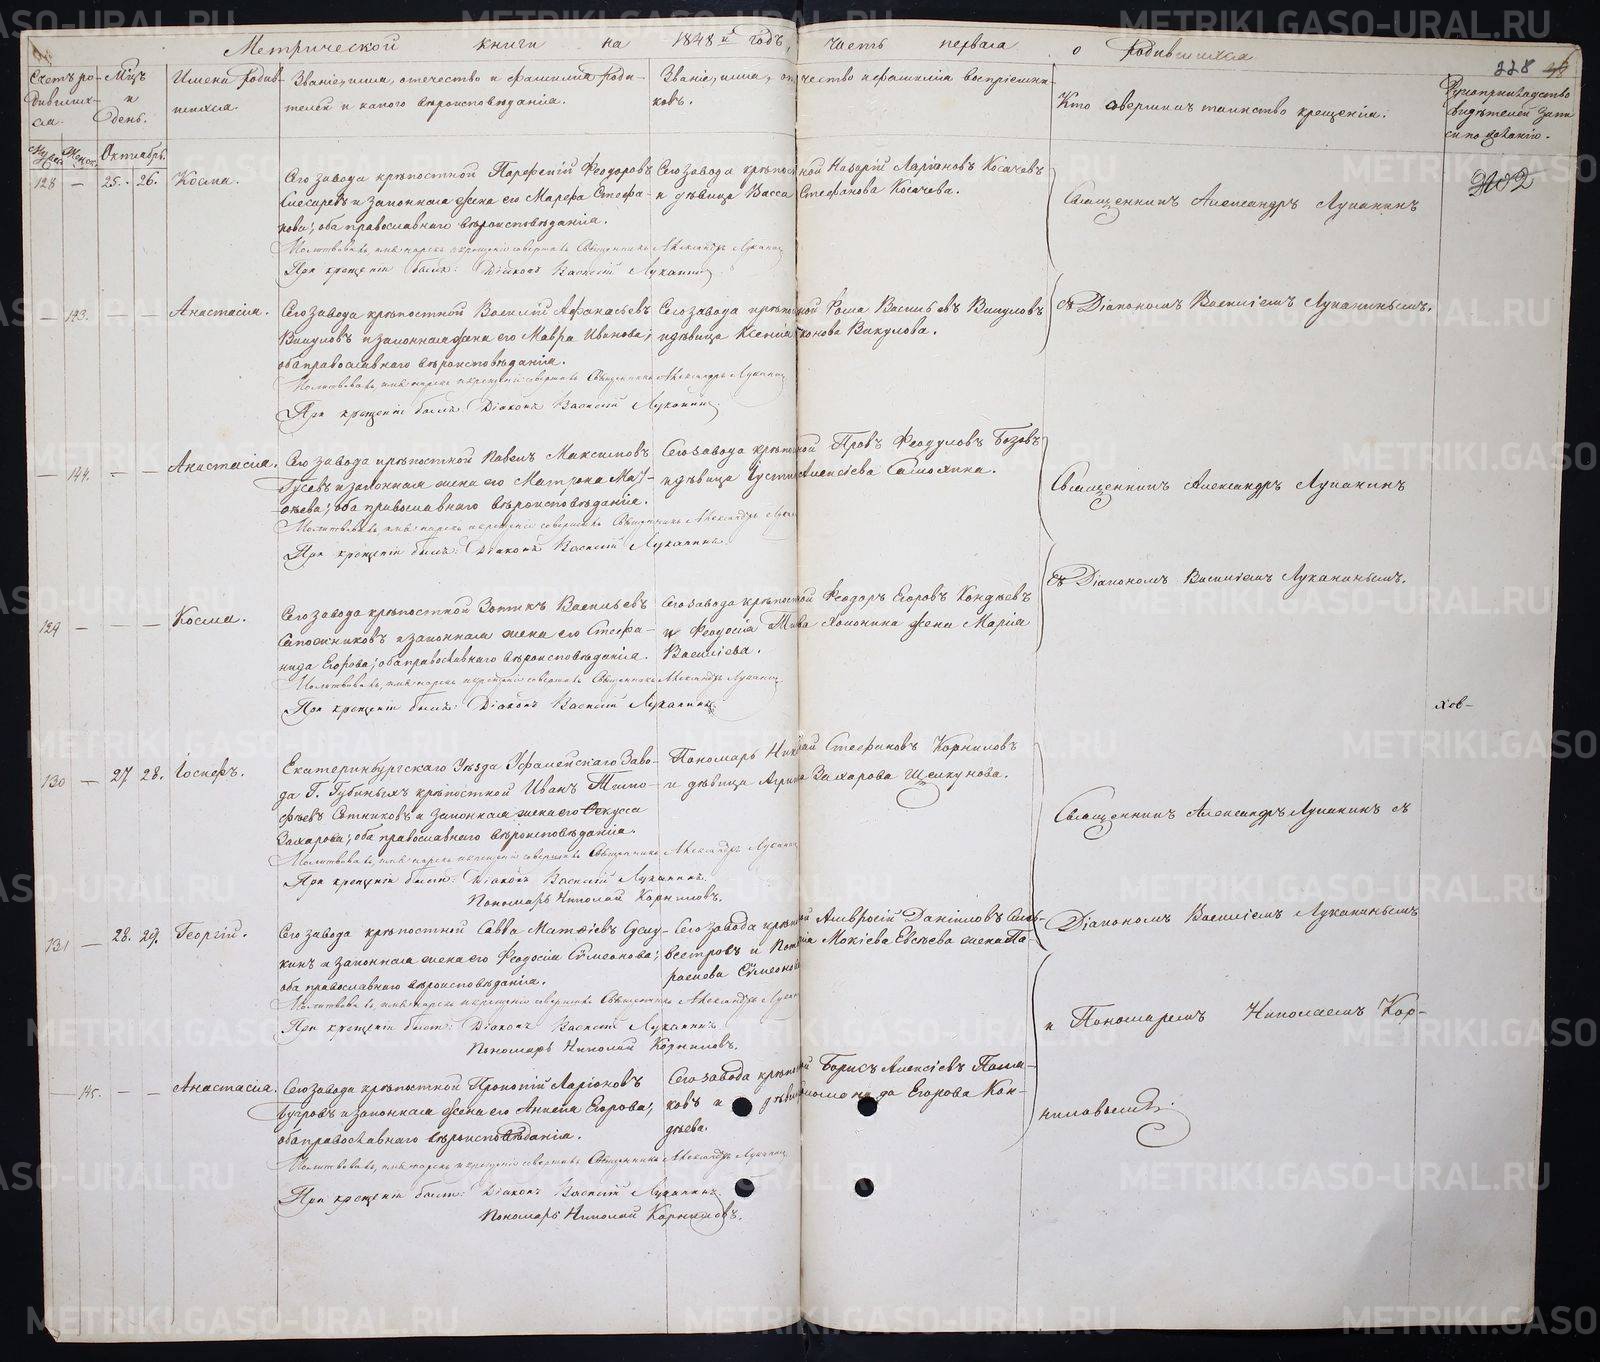 Метрической книги на 1848й годъ, часть первая о родившихся
228
Счетъ родившихся.
Мѣсяцъ и день.
Имена родившихся.
Званіе, имя, отечество и фамилія родителей и какого вѣроисповѣданія.
Званіе, имя, отчество и фамилія воспріемниковъ.
Кто совершилъ таинство крещенія.
Рукоприкладство свидѣтелей записи по желанію.
Октябрь.
128 — 25. 26. Косма.
Сего завода крѣпостной Парфеній Феодоровъ
Слесаревъ и законная жена его Марфа Стефа-
нова; оба православнаго вѣроисповѣданія.
Молитвовалъ, имя нарекъ и крещеніе совершалъ Священникъ Александръ Луканинъ
При крещеніи былъ: Діаконъ Василій Луканинъ
Сего завода крѣпостной Назарій Ларіоновъ Косачевъ
и дѣвица Васса Стефанова Косачева.
Священникъ Александръ Луканинъ
— 143. — — Анастасія.
Сего завода крѣпостной Василій Афанасьевъ
Викуловъ и законная жена его Мавра Иванова;
оба православнаго вѣроисповѣданія.
Молитвовалъ, имя нарекъ и крещеніе совершалъ Священникъ Александръ Луканинъ
При крещеніи былъ: Діаконъ Василій Луканинъ.
Сего завода крѣпостной Фома Васильевъ Викуловъ
и дѣвица Ксенія Викулова.
съ Діакономъ Василіемъ Луканинымъ.
— 144. — — Анастасія.
Сего завода крѣпостной Павелъ Максимовъ
Гусевъ и законная жена его Матрона Мат-
ѳѣева; оба православнаго вѣроисповѣданія.
Молитвовалъ, имя нарекъ и крещеніе совершалъ Священникъ Александръ Луканинъ
При крещеніи былъ: Діаконъ Василій Луканинъ
Сего завода крѣпостной Провъ Феодуловъ Бозовъ
и дѣвица Алексѣева Самохина.
Священникъ Александръ Луканинъ
129 — — — Косма.
Сего завода крѣпостной Зотикъ Васильевъ
Сапожниковъ и законная жена его Стефа-
нида Егорова; оба православнаго вѣроисповѣданія.
Молитвовалъ, имя нарекъ и крещеніе совершалъ Священникъ Александръ Луканинъ
При крещеніи былъ: Діаконъ Василій Луканинъ
Сего завода крѣпостной Феодоръ Егоровъ Кондѣевъ
и Феодосія жена Марія
Василіева.
съ Діакономъ Василіемъ Луканинымъ.
130 — 27 28. Іосифъ.
Екатеринбургскаго Уѣзда Уфалейскаго Заво-
да Г. Губиныхъ крѣпостной Иванъ Тимо-
фѣевъ Сотниковъ и законная жена его
Захарова; оба православнаго вѣроисповѣданія.
Молитвовалъ, имя нарекъ и крещеніе совершалъ Священникъ Александръ Луканинъ
При крещеніи были: Діаконъ Василій Луканинъ
Пономарь Николай Корниловъ.
Пономарь Николай Стефановъ Корниловъ
и дѣвица Захарова Щелкунова.
Священникъ Александръ Луканинъ съ
131 — 28. 29. Георгій.
Сего завода крѣпостной Савва Матѳіевъ
и законная жена его Феодосія Сѵмеонова;
оба православнаго вѣроисповѣданія.
Молитвовалъ, имя нарекъ и крещеніе совершалъ Священникъ Александръ Луканинъ
При крещеніи были: Діаконъ Василій Луканинъ
Пономарь Николай Корниловъ.
Сего завода крѣпостной Амвросій Даніиловъ Сель-
вестровъ и Мокіева Евсѣева жена Па-
Діакономъ Василіемъ Луканинымъ
и Пономаремъ Николаемъ Кор-
ниловымъ.
— 145. — — Анастасія.
Сего завода крѣпостной Прокопій Ларіоновъ
и законная жена его Егорова;
оба православнаго вѣроисповѣданія.
Молитвовалъ, имя нарекъ и крещеніе совершалъ Священникъ Александръ Луканинъ
При крещеніи были: Діаконъ Василій Луканинъ
Пономарь Николай Корниловъ.
Сего завода крѣпостной Борисъ Алексіевъ
и Егорова Кон-
дѣева.
METRIKI.GASO-URAL.RU